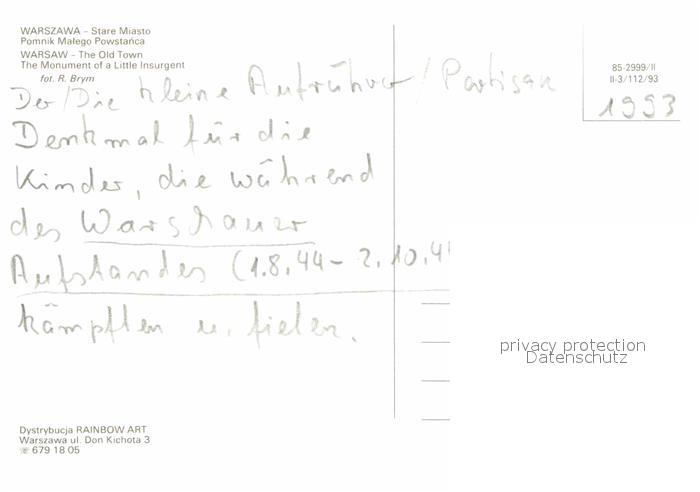 WARSZAWA – Stare Miasto
Pomnik Małego Powstańca
WARSAW – The Old Town
The Monument of a Little Insurgent
fot. R. Brym
85-2999/II
II-3/112/93
1993
Der/Die kleine Aufrührer/Partisan
Denkmal für die
Kinder, die während
des Warschauer
Aufstandes (1.8.44 – 2.10.4
kämpften u. fielen.
privacy protection
Datenschutz
Dystrybucja RAINBOW ART
Warszawa ul. Don Kichota 3
☏ 679 18 05